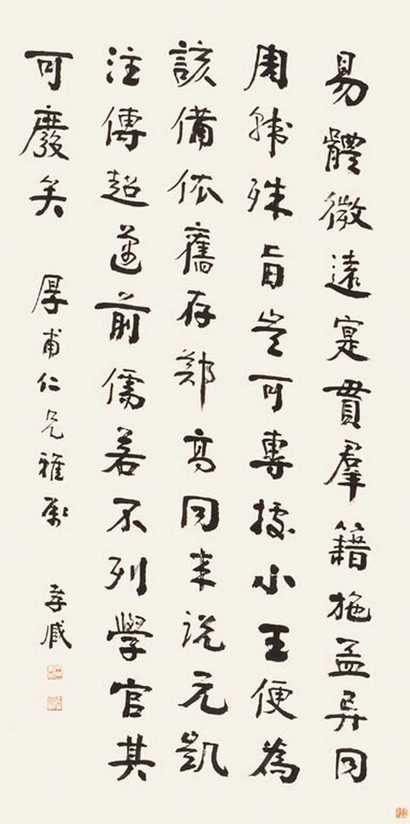 易體微遠寔貫羣籍施孟異同
周韓殊旨豈可專據小王便為
該備依舊存鄭高同来說元凱
注傳超邁前儒若不列學官其
可廢矣
厚甫仁兄雅屬
孝臧